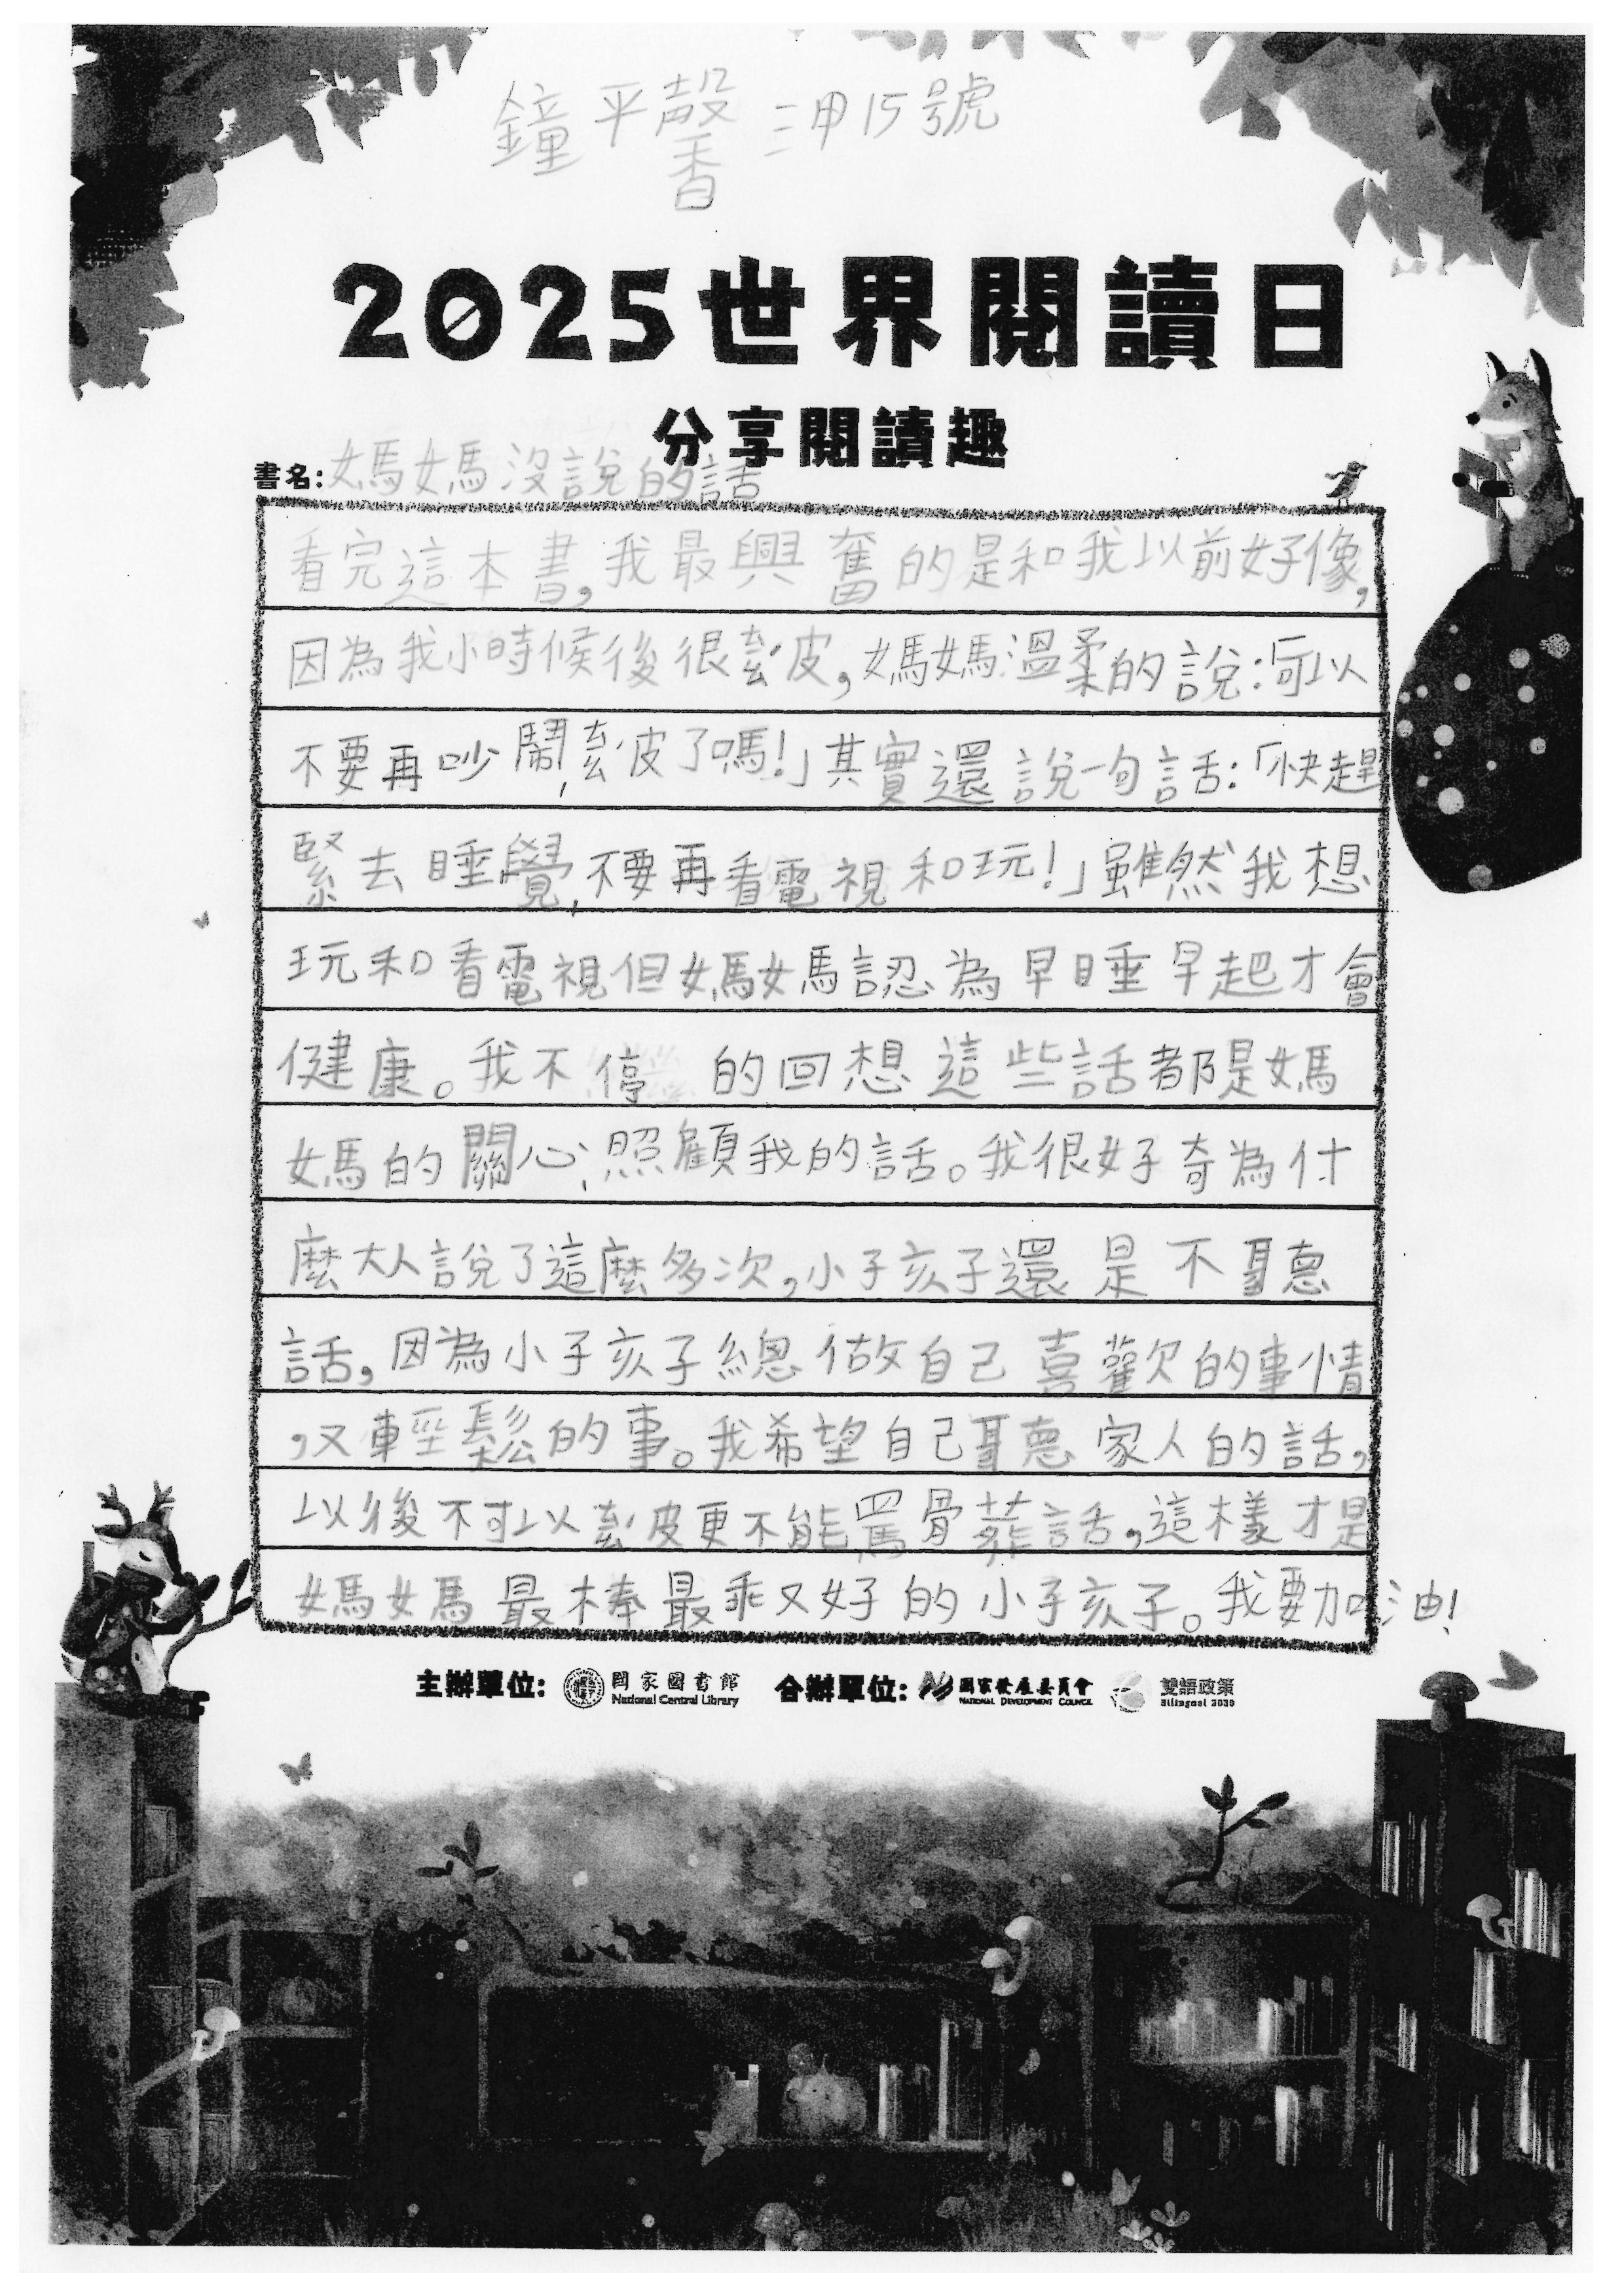 鐘平馨 三甲15號
2025世界閱讀日
分享閱讀趣
書名:媽媽沒說的話
看完這本書,我最興奮的是和我以前好像,
因為我小時候後很ㄊㄠˊ皮,媽媽溫柔的說:「可以
不要再吵鬧、ㄊㄠˊ皮了嗎!」其實還說一句話:「快趕
緊去睡覺,不要再看電視和玩!」雖然我想
玩和看電視但媽媽認為早睡早起才會
健康。我不停的回想這些話都是媽
媽的關心、照顧我的話。我很好奇為什
麼大人說了這麼多次,小孩子還是不聽
話,因為小孩子總做自己喜歡的事情
,又輕鬆的事。我希望自己聽家人的話,
以後不可以ㄊㄠˊ皮更不能罵骨葬話,這樣才是
媽媽最棒最乖又好的小孩子。我要加油!
主辦單位: 國家圖書館 National Central Library 合辦單位: 國家發展委員會 NATIONAL DEVELOPMENT COUNCIL 雙語政策 Bilingual 2030